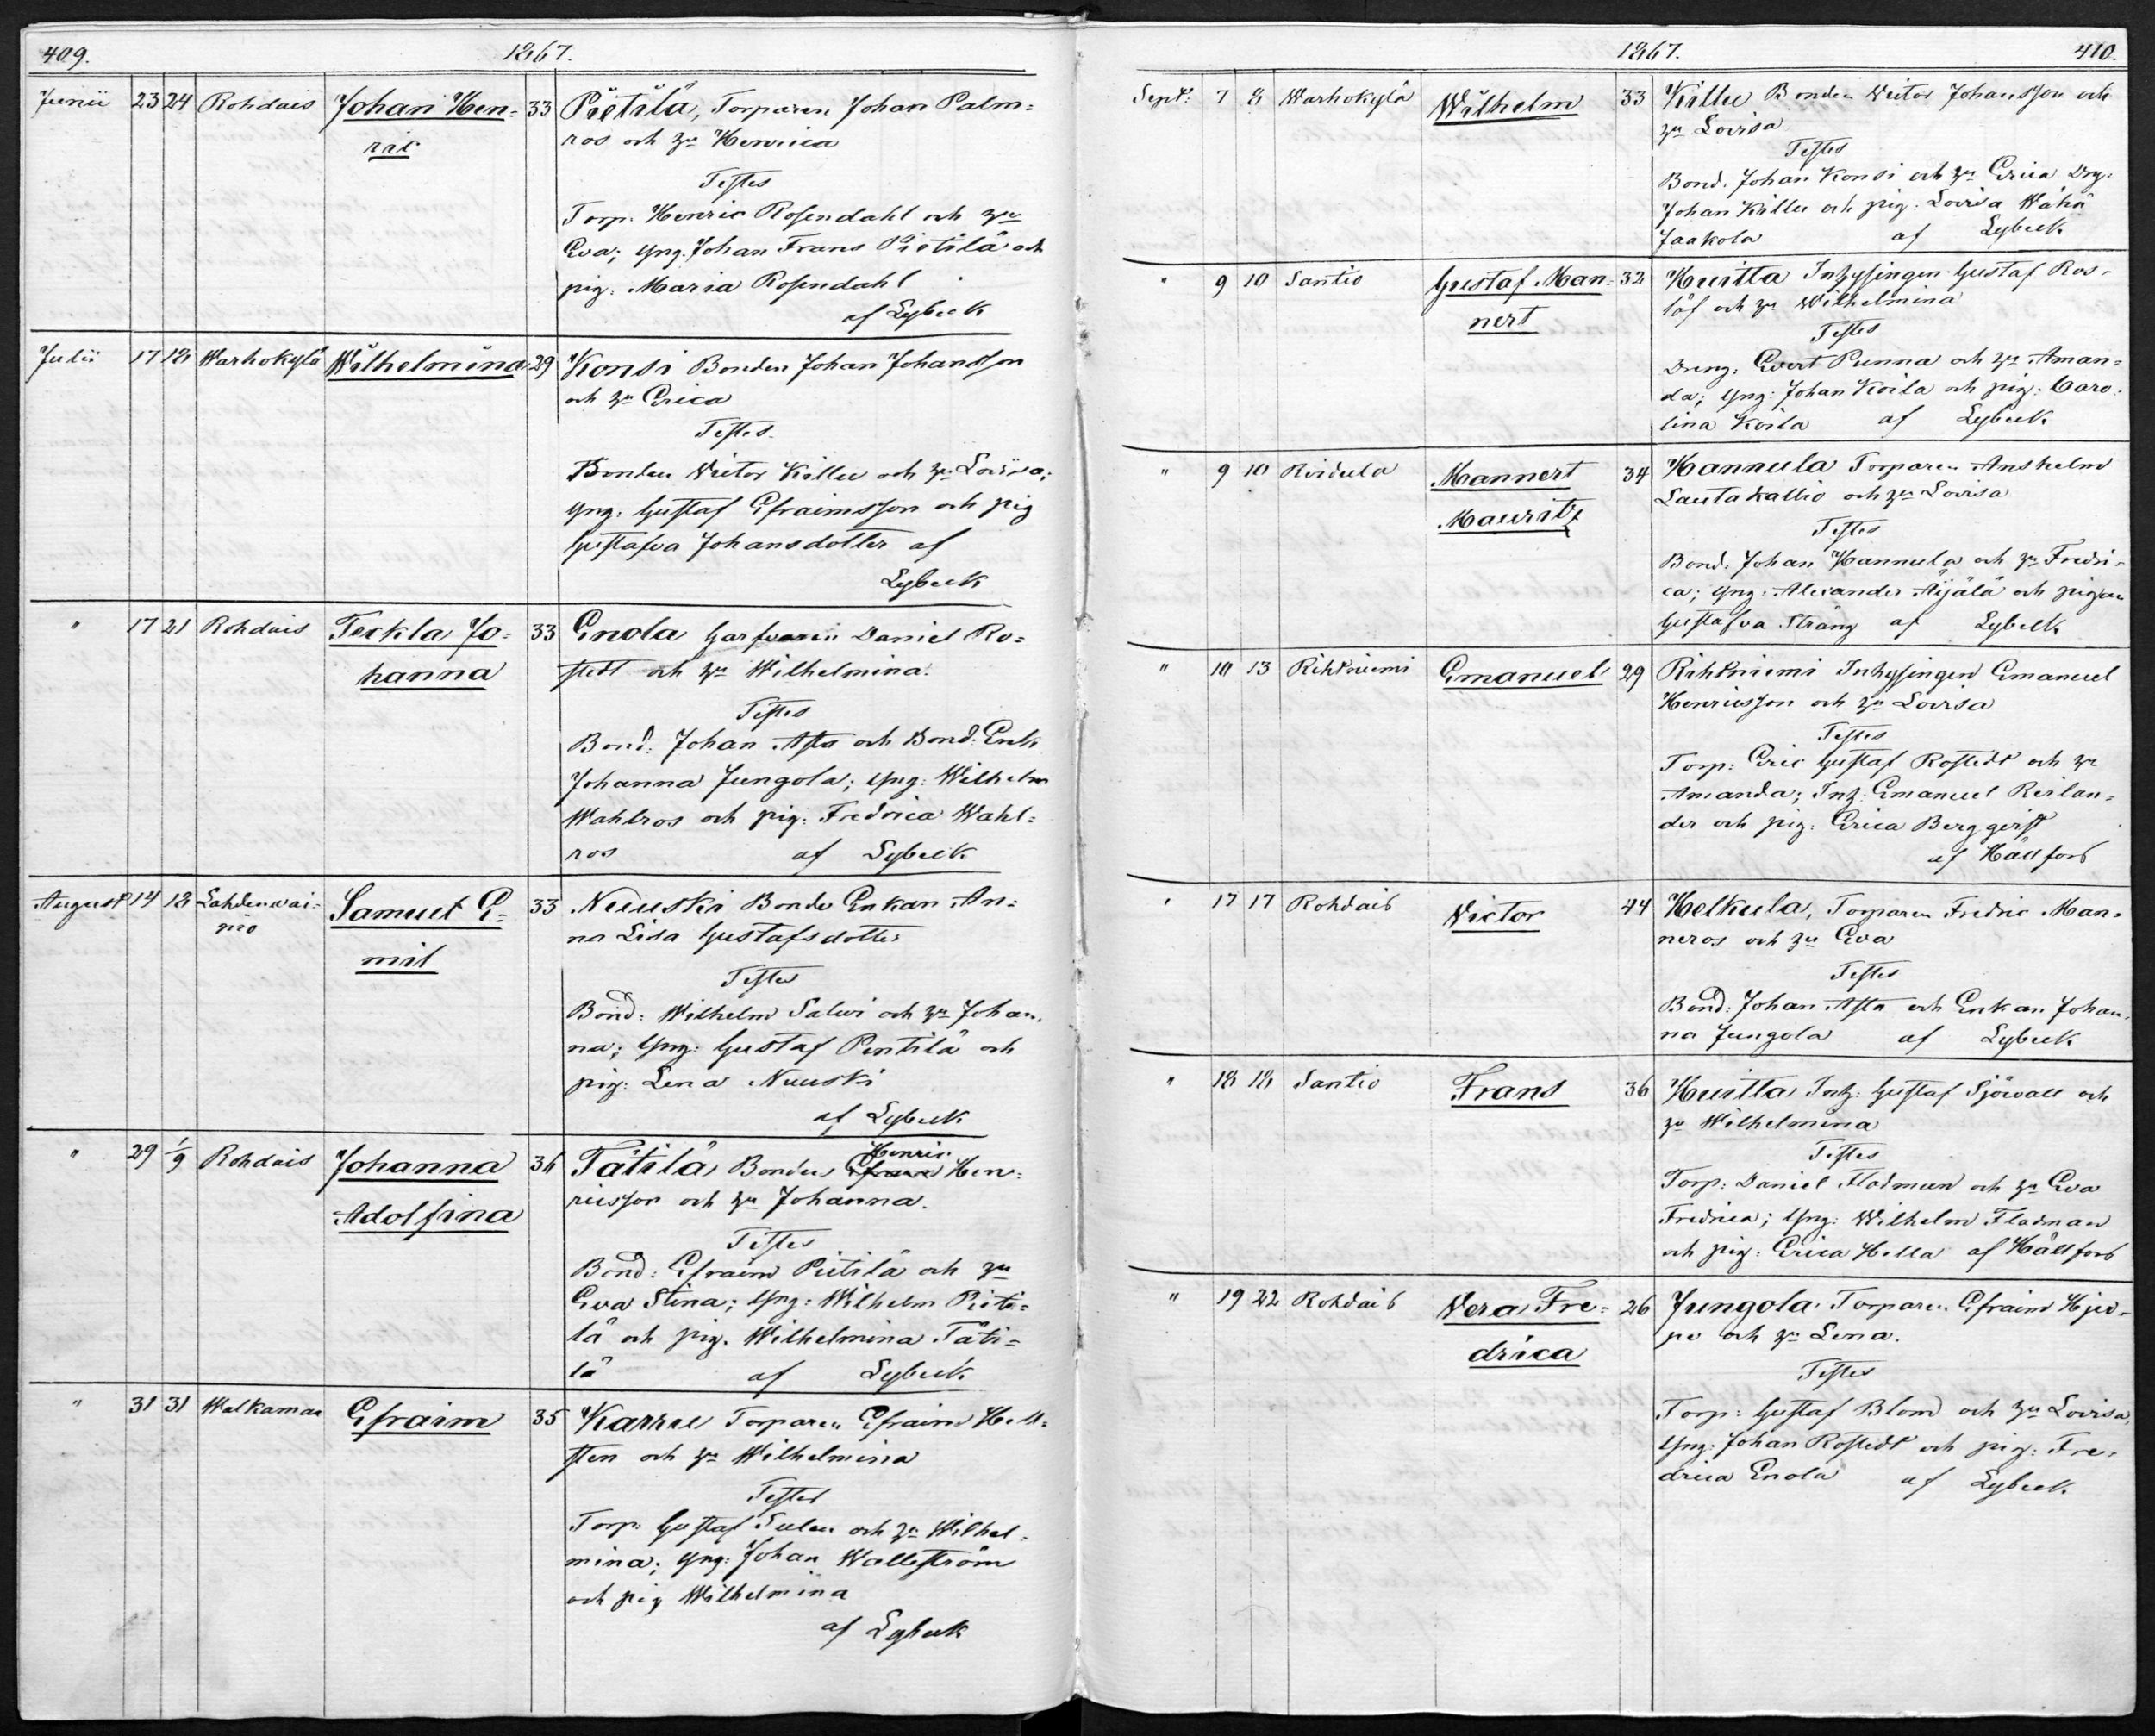 409.
1867.
Junii 23 24 Rohdais Johan Hen= 33 Pietilä, Torparen Johan Palm=
ric ros och hu Henrica
Testes
Torp. Henric Rosendahl och hu
Eva; yng. Johan Frans Pietilä och
pig. Maria Rosendahl
af Lybeck
Julii 17 18 Warhokylä Wilhelmina 29 Konsi Bonden Johan Johansson
och hu Erica
Testes
Bonden Victor Killu och hu Lovisa;
yng: Gustaf Efraimsson och pig
Gustafva Johansdotter af
Lybeck
" 17 21 Rohdais Teckla Jo= 33 Enola Garfvaren Daniel Ro=
hanna stedt och hu Wilhelmina
Testes
Bond: Johan Asta och Bond: Enk
Johanna Jungola; yng: Wilhelm
Wahlros och pig: Fredrica Wahl=
ros af Lybeck
August 14 18 Lahdenwai= Samuel E= 33 Nuuski Bonde Enkan An=
pio mil na Lisa Gustafsdotter
Testes
Bond: Wilhelm Salwi och hu Johan=
na; yng: Gustaf Pentilä och
pig: Lena Nuuski
af Lybeck
" 29 1/9 Rohdais Johanna 36 Tätilä Bonden Henric Hen=
Adolfina ricsson och hu Johanna.
Testes
Bond: Efraim Pietilä och hu
Eva Stina; yng: Wilhelm Pieti=
lä och pig. Wilhelmina Täti=
lä af Lybeck
" 31 31 Walkamaa Efraim 35 Karru Torparen Efraim Hell=
sten och hu Wilhelmina
Testes
Torp: Gustaf Sulen och hu Wilhel=
mina; yng: Johan Wallström
och pig Wilhelmina
af Lybeck
1867.
410.
Sept: 7 8 Warhokylä Wilhelm 33 Killu Bonden Victor Johansson och
hu Lovisa
Testes
Bond. Johan Konsi och hu Erica Drg:
Johan Killu och pig: Lovisa Wähä
Jaakola af Lybeck
" 9 10 Santio Gustaf Man= 32 Huitta Inhysingen Gustaf Ros=
nert löf och hu Wilhelmina
Testes
Dreng: Evert Punna och hu Aman=
da; yng: Johan Koila och pig: Caro=
lina Koila af Lybeck
" 9 10 Roidula Mannert 34 Hannula Torparen Anshelm
Mauritz Lautakallio och hu Lovisa
Testes
Bond. Johan Hannula och hu Fredri=
ca; yng: Alexander Äijälä och pigan
Gustafva Sträng af Lybeck
" 10 13 Rihtniemi Emanuel 29 Rihtniemi Inhysingen Emanuel
Henricsson och hu Lovisa
Testes
Torp: Eric Gustaf Rostedt och hu
Amanda; Inh: Emanuel Reilan=
der och pig: Erica Bergqvist
af Hällfors
" 17 17 Rohdais Victor 44 Helkula, Torparen Fredric Man=
neros och hu Eva
Testes
Bond: Johan Asta och Enkan Johan=
na Jungola af Lybeck
" 18 18 Santio Frans 36 Huitta Inh: Gustaf Sjöwall och
hu Wilhelmina
Testes
Torp: Daniel Fladman och hu Eva
Fredrica; yng: Wilhelm Fladman
och pig: Erica Hella af Hällfors
" 19 22 Rohdais Wera Fre= 26 Jungola Torparen Efraim Hjel=
drica pe och hu Lena.
Testes
Torp: Gustaf Blom och hu Lovisa,
yng: Johan Rostedt och pig: Fre=
drica Enola af Lybeck